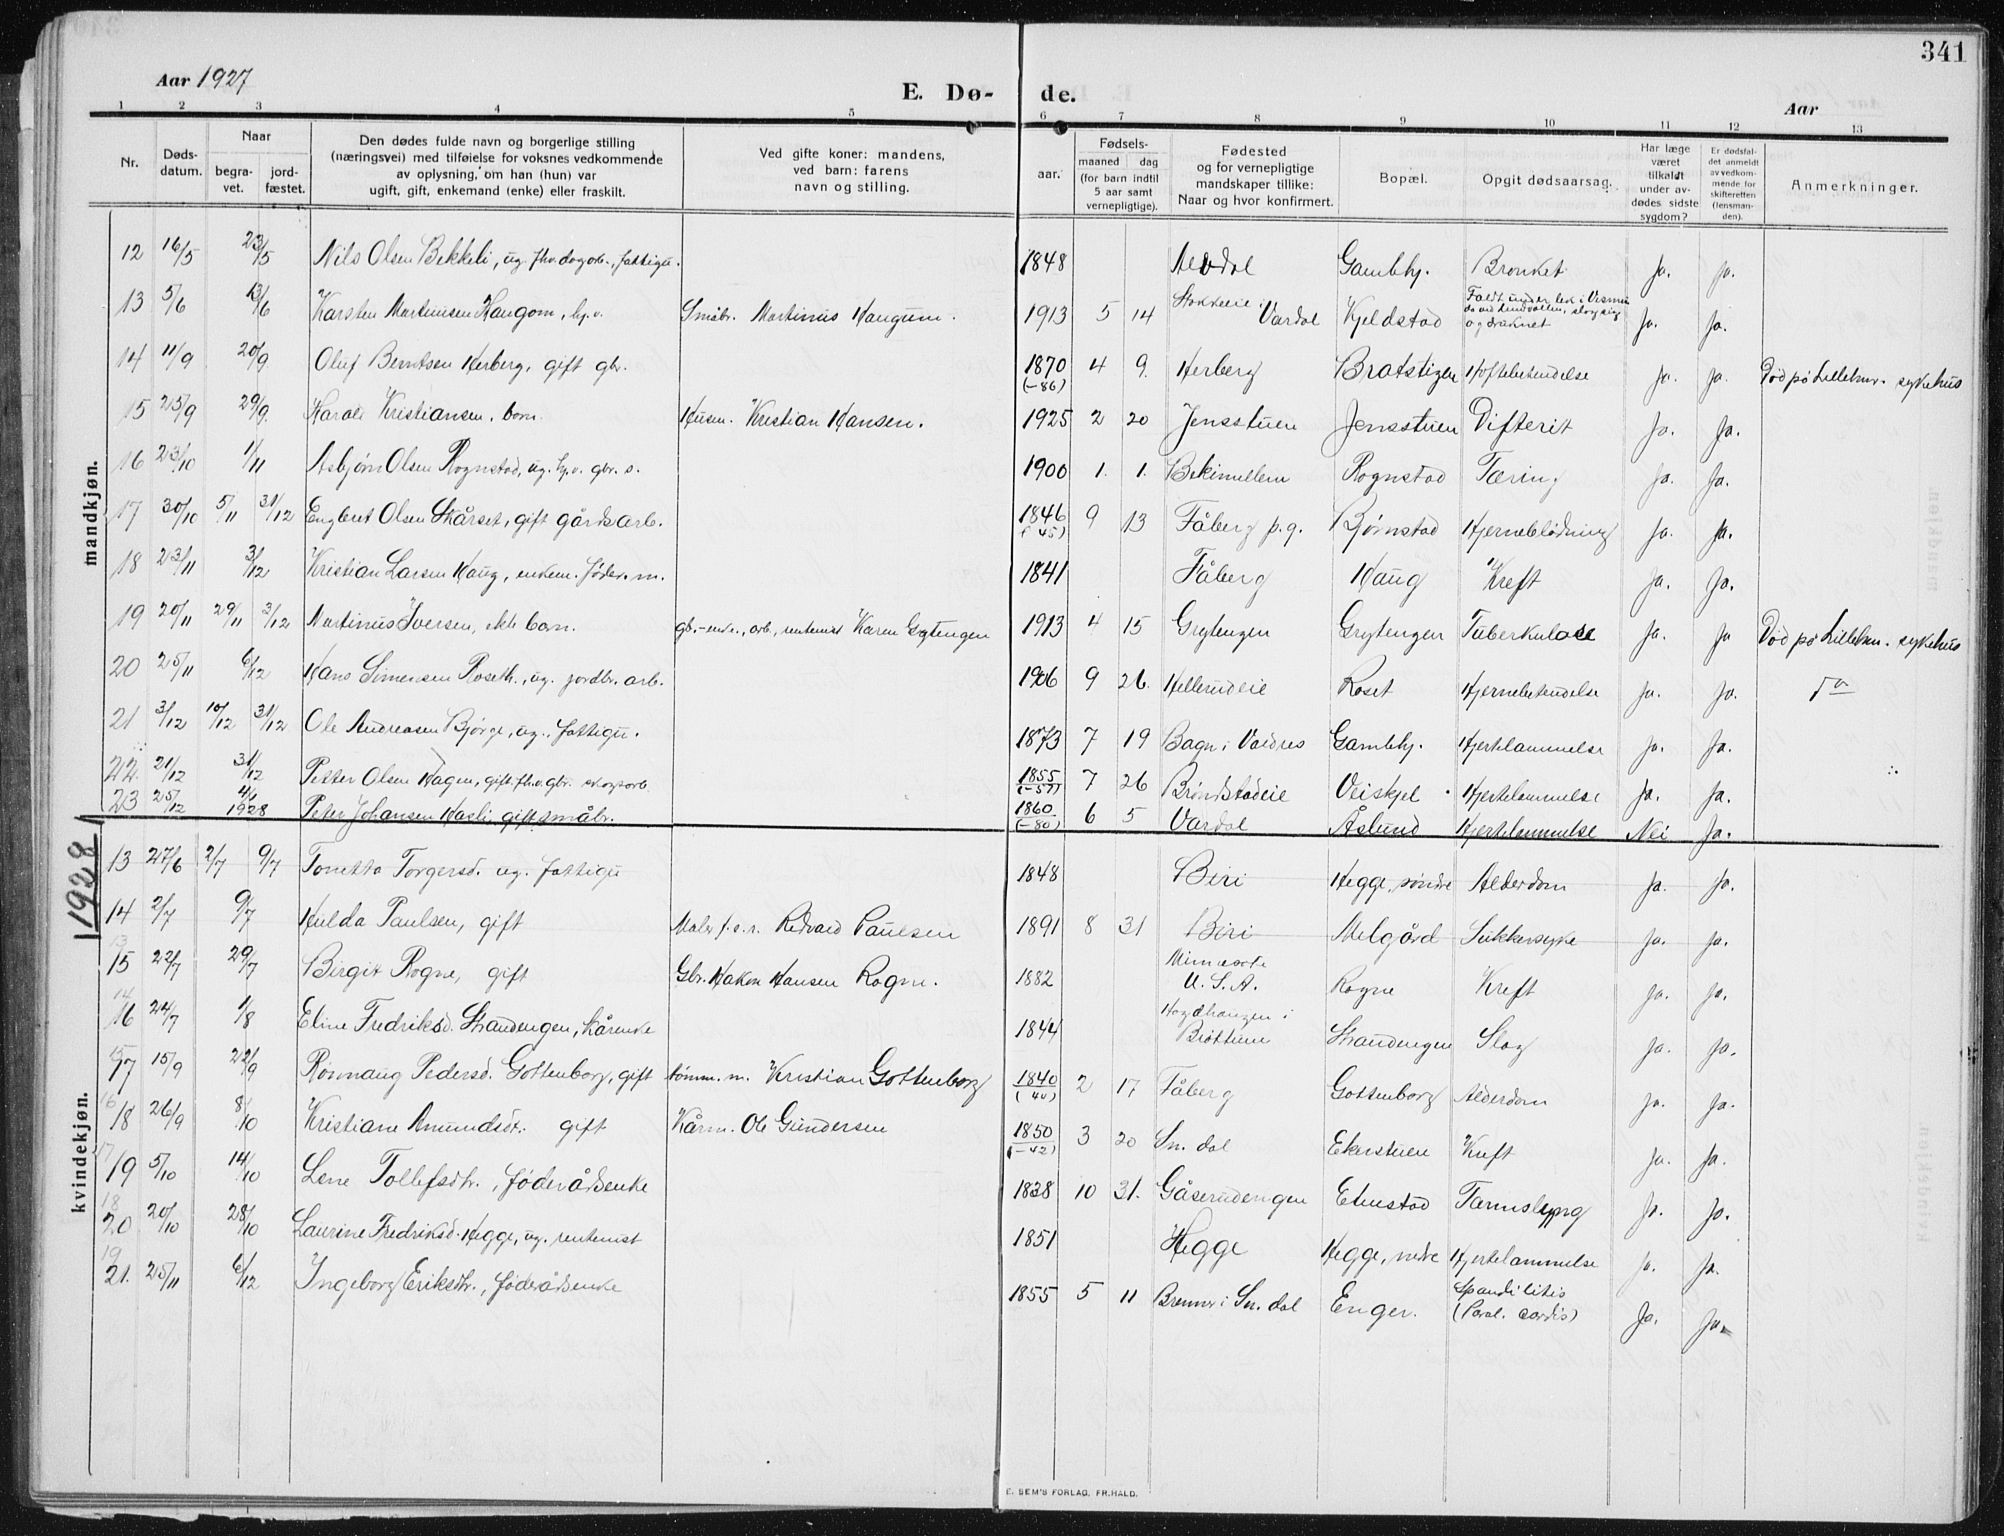 341
Aar 1927
E. Dø- de.
Aar
1 2 3 4 5 6 7 8 9 10 11 12 13
Nr.
Døds-
datum.
Naar
begra-
vet.
jord-
fæstet.
Den dødes fulde navn og borgerlige stilling
(næringsvei) med tilføielse for voksnes vedkommende
av oplysning, om han (hun) var
ugift, gift, enkemand (enke) eller fraskilt.
Ved gifte koner: mandens,
ved barn: farens
navn og stilling.
Fødsels-
aar.
maaned
dag
(for barn indtil
5 aar samt
vernepligtige).
Fødested
og for vernepligtige
mandskaper tillike:
Naar og hvor konfirmert.
Bopæl.
Opgit dødsaarsag.
Har læge
været
tilkaldt
under av-
dødes sidste
sygdom?
Er dødsfal-
det anmeldt
av vedkom-
mende for
skifteretten
(lensman-
den).
Anmerkninger.
mandkjøn.
12 16/5 23/5 Nils Olsen Bekkeli, ug. fhv. dagarb., fattigu. 1848 Gambhj. Bronket Ja. Ja.
13 5/6 13/6 Karsten Martinsen Haugom, hj.v. Småbr. Martinus Haugum. 1913 5 14 Stokkeeie i Vardal Kjeldstad Faldt under lek i Vismun og druknet Ja. Ja.
14 11/9 20/9 Oluf Berntsen Herberg, gift gbr. 1870 (-86) 4 9. Herberg Bratstigen Hoftebetendelse Ja. Ja. Död på Lilleham. sykehus
15 25/9 29/9. Harald Kristiansen, barn. Husm. Kristian Hansen. 1925 2 20 Jensstuen Jensstuen Difterit Ja. Ja.
16 23/10 1/11 Asbjørn Olsen Rognstad, ug. hj.v. gbr. s. 1900 1. 1. Bekimellem Rognstad Tæring Ja. Ja.
17 30/10 5/11 31/12 Engebret Olsen Skårset, gift gårdsarb. 1846 (-45) 9 13 Fåberg p.g. Bjørnstad Hjerneblödning Ja. Ja.
18 23/11 3/12 Kristian Larsen Haug, enkem. föder. m. 1841 Fåberg Haug Kreft Ja. Ja.
19 20/11 29/11 3/12 Martinus Iversen, ekte barn. gb.-enke, arb., rentenist Karen Grytengen 1913 4 15 Grytengen Grytengen Tuberkulose Ja. Ja Död på Lilleham. sykehus
20 25/11 6/12 Hans Simensen Roseth, ug. jordbr. arb. 1906 9 26. Hellerudeie Roset Hjernebetendelse Ja. Ja. do
21 3/12 10/12 31/12 Ole Andreasen Bjørge, ug., fattigu. 1873 7 19 Bagn i Valdres Gambhj. Hjertelammelse Ja. Ja.
22. 21/12 31/12 Petter Olsen Hagen, gift, fh.v. gbr. skogsarb. 1855 (-57) 7 26 Brøndstadeie Veiskjel Hjertelammelse Ja. Ja.
23 25/12 4/1 1928 Peter Johansen Hasli, gift småbr. 1860 (-80) 6 5 Vardal Åslund Hjertelammelse Nei Ja.
1928
kvindekjøn.
13 27/6 2/7 9/7 Tonetta Torgersd. ug. fattigu 1848 Biri Hegge, søndre Alderdom Ja. Ja.
14 2/7 9/7 Hulda Paulsen, gift Maler Redvald Paulsen 1891 8 31 Biri Melgård Sukkersyke Ja. Ja.
13
15 22/7 29/7 Birgit Rogne, gift Gbr. Hakon Hansen Rogne. 1882 Minnesota U.S.A. Rogne Kreft Ja. Ja.
14
16 24/7 1/8 Eline Fredriksd. Strandengen, kårenke 1844 Haydhaugen i Brøttum Strandengen Slag Ja. Ja.
15
17 15/9 22/9 Rönnaug Pedersd. Gottenborg, gift tömm. m. Kristian Gottenborg 1840 (40) 2 17 Fåberg Gottenborg Alderdom Ja. Ja.
16
18 26/9 8/10 Kristiane Amundsdt. gift Kårm. Ole Gundersen 1850 (-42) 3 20 Sn. dal Ekerstuen Kreft Ja. Ja.
17
19 5/10 14/10 Lene Tollefsdtr., föderådsenke 1838 10 31. Gåserudengen Elnstad Tarmslyng Ja. Ja.
18
20 20/10 28/10 Laurine Fredriksd. Hegge, ug. rentenist 1851 Hegge Hegge, nedre Hjertelammelse Ja. Ja.
19
21. 25/11 6/12 Ingeborg Eriksdtr., föderådsenke 1855 5 11 Brenna i Sn. dal Enger. Spondilitis (Paral. cordis) Ja. Ja.
E. SEM'S FORLAG, FR.HALD.